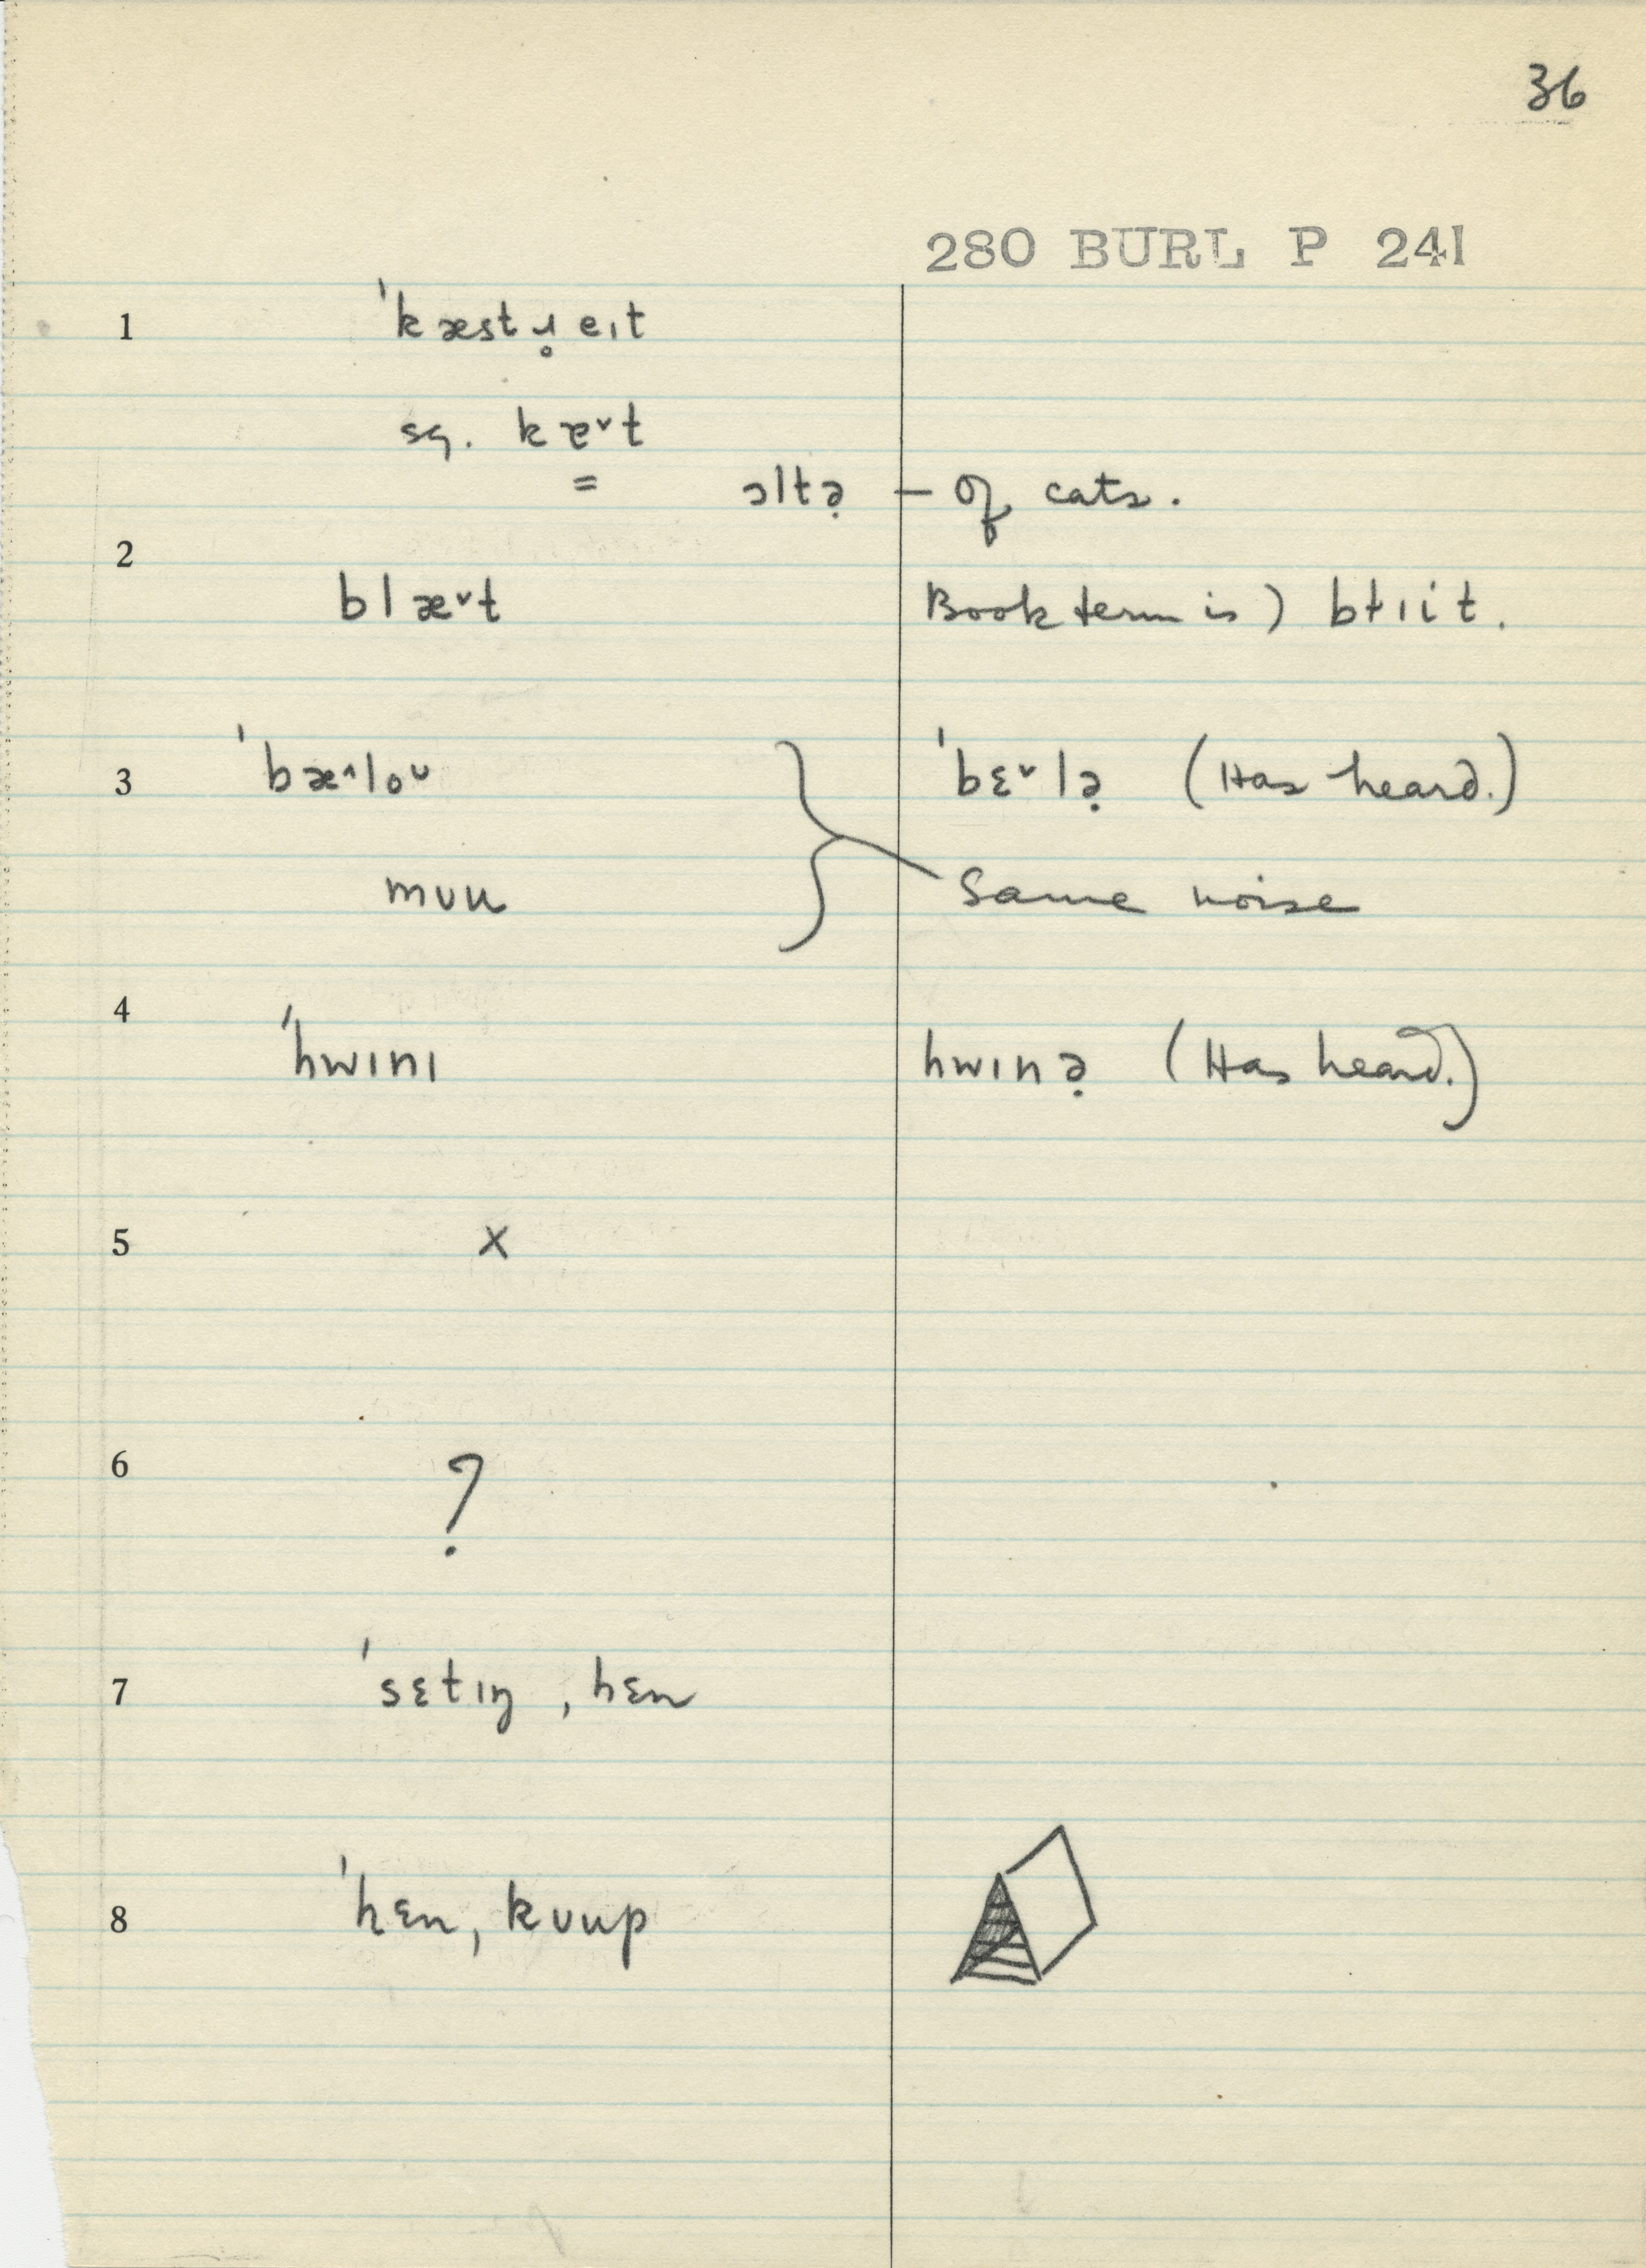 36
280 BURL P 241
1 ˈkæstɹ̥eɪt
sq. kæ̳˅t
ɔltə̣ – of cats.
2
blæ˅t Book term is) bɫɪit.
3 ˈbæ˄loᴜ ˈbɛ˅lə̣ (Has heard.)
mᴜu Same noise
4
ˈhwɪnɪ hwɪnə̣ (Has heard.)
5 x
6 ?
7 ˈsɛtɪŋ ˌhɛn
8 ˈhɛn ˌkᴜup